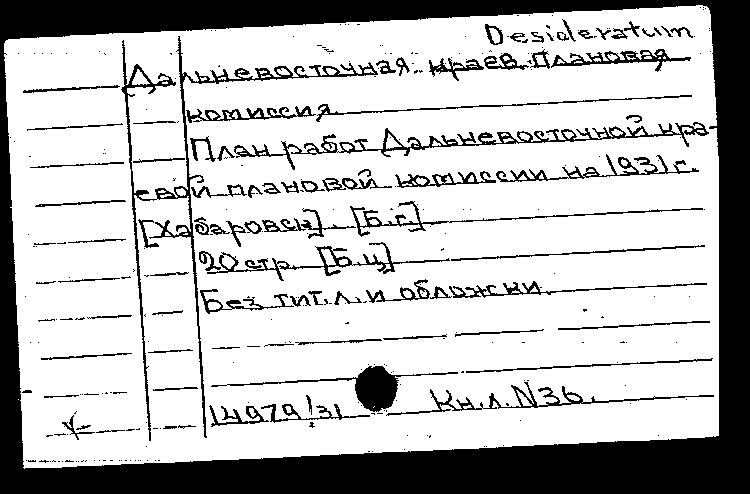 Desideratum
Дальневосточная краев. плановая
комиссия.
План работ Дальневосточной кра-
евой плановой комиссии на 1931 г.
[Хабаровск]. [Б.г.]
20 стр. [Б.ц.]
Без тит.л. и обложки.
14979!31 Кн.л. N36.